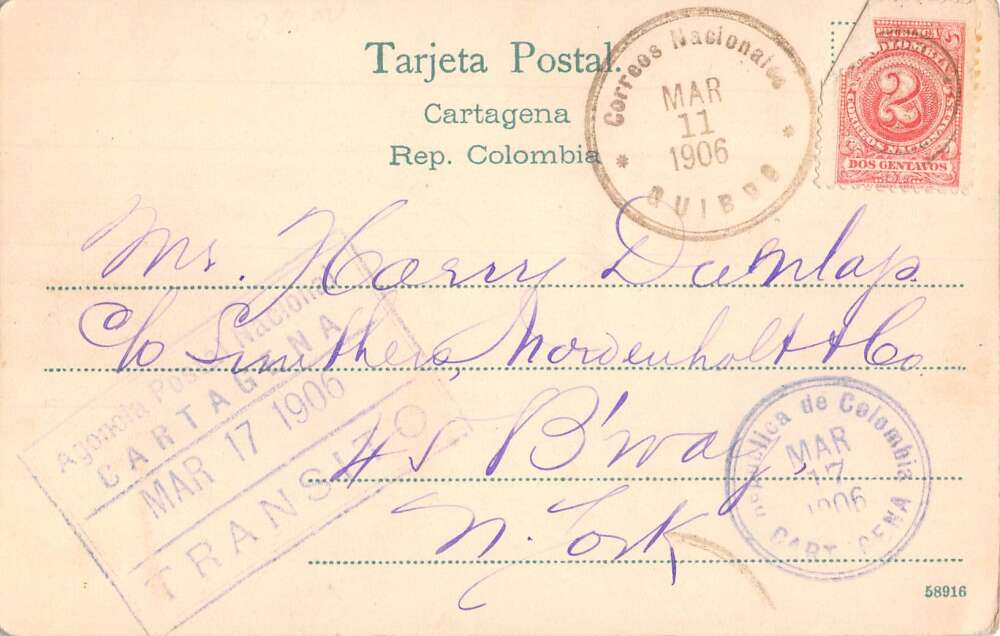 Tarjeta Postal.
Cartagena
Rep. Colombia
Correos Nacionales
MAR
11
1906
QUIBDO
REPUBLICA
COLOMBIA
2
CORREOS NACIONALES
DOS CENTAVOS
Mr. Harry Dunlap
c/o Smithers, Nordenholt & Co
45 B'way,
N. York
Agencia Postal Nacional
CARTAGENA
MAR 17 1906
TRANSITO
Republica de Colombia
MAR
17
1906
CARTAGENA
58916